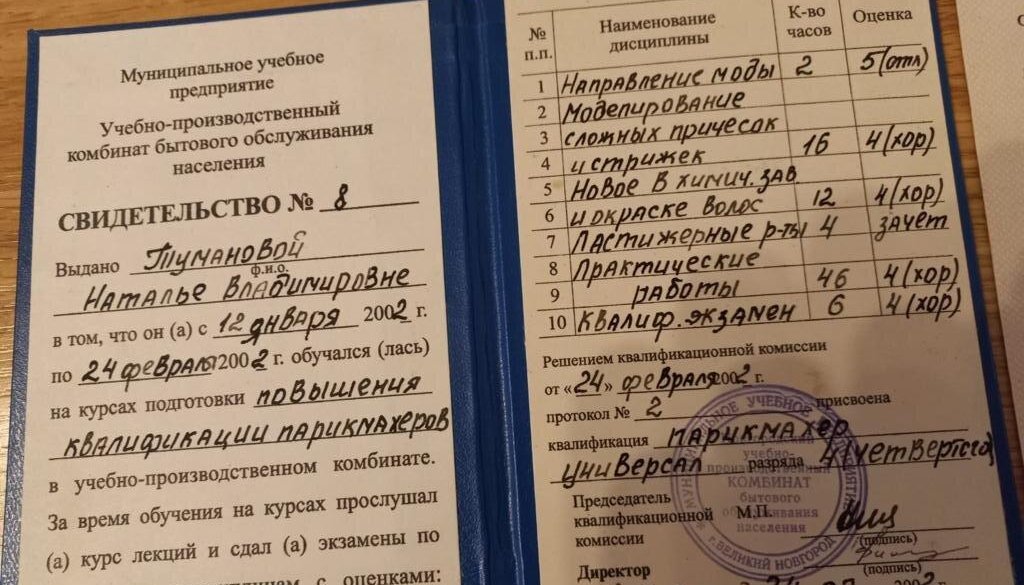 Муниципальное учебное
предприятие
Учебно-производственный
комбинат бытового обслуживания
населения
СВИДЕТЕЛЬСТВО № 8
Выдано Тумановой
ф.и.о.
Наталье Владимировне
в том, что он (а) с 12 января 2002 г.
по 24 февраля 2002 г. обучался (лась)
на курсах подготовки повышения
квалификации парикмахеров
в учебно-производственном комбинате.
За время обучения на курсах прослушал
(а) курс лекций и сдал (а) экзамены по
с оценками:
№ п.п. Наименование дисциплины К-во часов Оценка
1 Направление моды 2 5 (отл)
2 Моделирование
3 сложных причесок
4 и стрижек 16 4 (хор)
5 Новое в химич. зав
6 и окраске волос 12 4 (хор)
7 Пастижерные р-ты 4 зачет
8 Практические
9 работы 46 4 (хор)
10 Квалиф. экзамен 6 4 (хор)
Решением квалификационной комиссии
от «24» февраля 2002 г.
протокол № 2 присвоена
квалификация парикмахер
универсал разряда 4 (четвертого)
Председатель
квалификационной М.П.
комиссии
(подпись)
Директор
(подпись)
МУНИЦИПАЛЬНОЕ УЧЕБНОЕ ПРЕДПРИЯТИЕ
учебно-
производственный
КОМБИНАТ
бытового
обслуживания
населения
г. ВЕЛИКИЙ НОВГОРОД